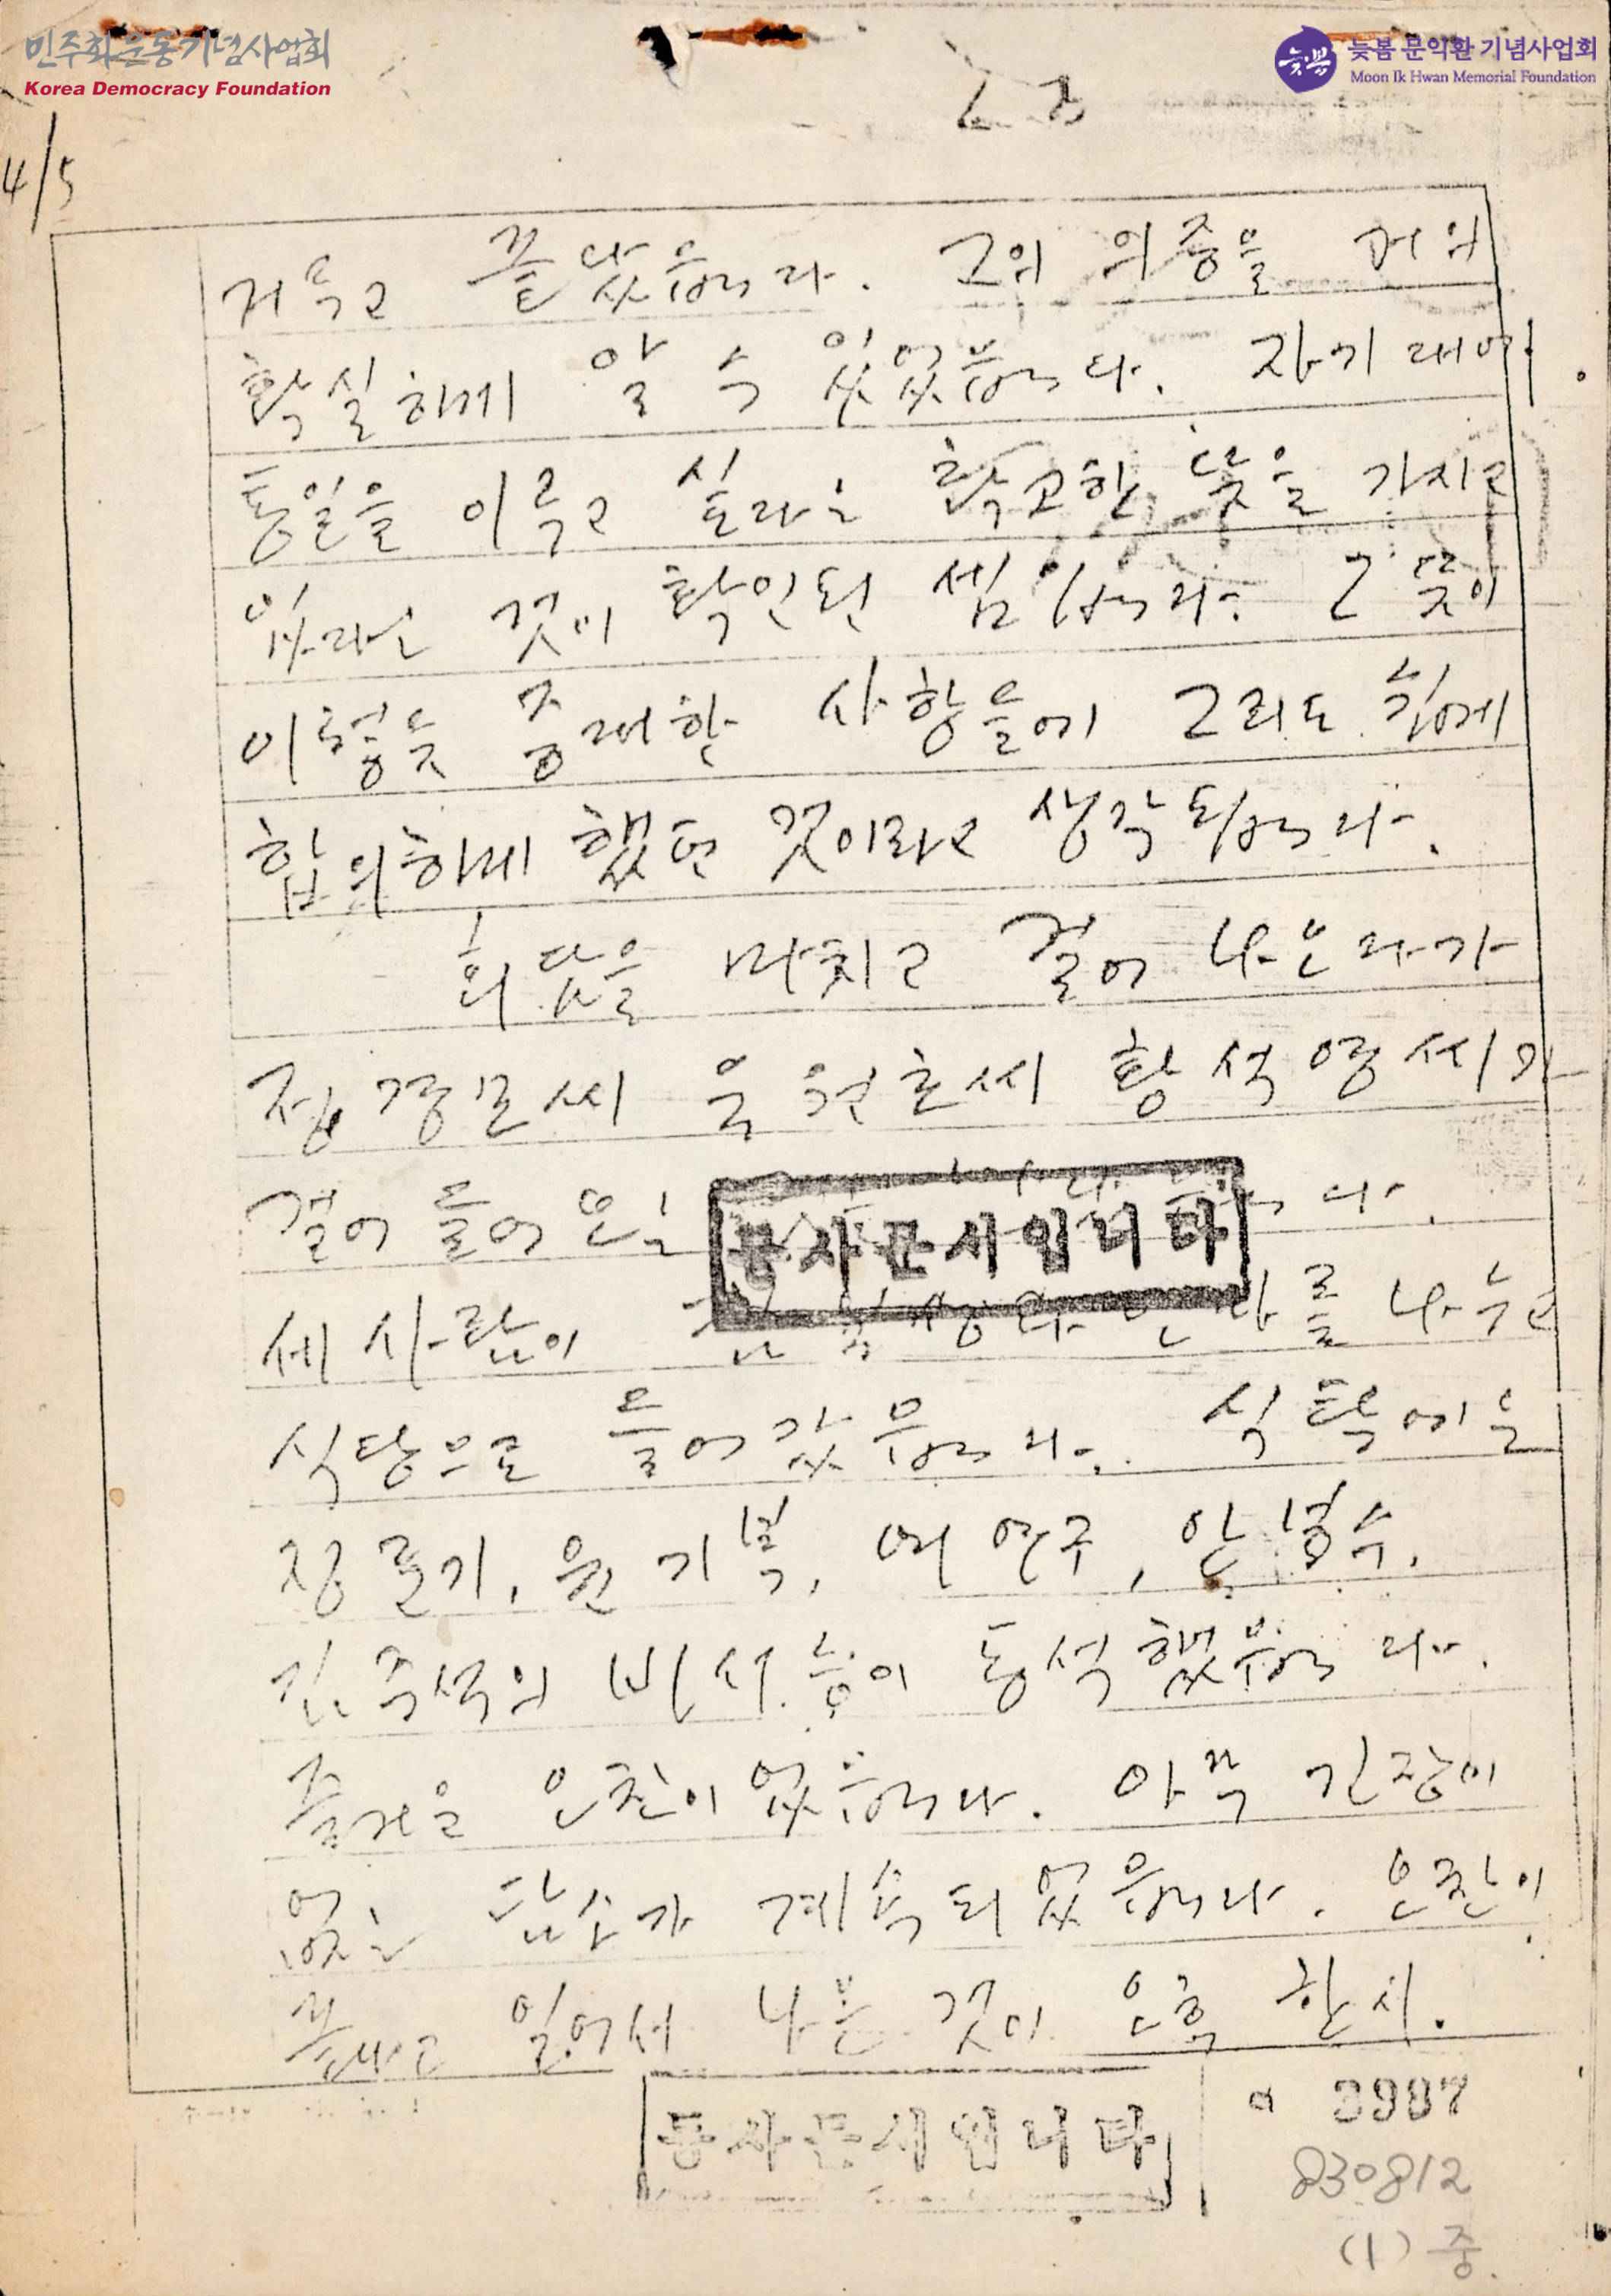 민주화운동기념사업회
Korea Democracy Foundation
늦봄 문익환 기념사업회
Moon Ik Hwan Memorial Foundation
4/5
끝났읍니다. 그의 의중을 거의
확실하게 알 수 있었읍니다. 자기 대에
통일을 이루고 싶다는 확고한 뜻을 가지고
있다는 것이 확인된 셈입니다. 그 뜻이
이렇듯 중대한 사항들에 그리도 쉽게
합의하게 했던 것이라고 생각됩니다.
회담을 마치고 걸어 나오다가
정경모씨 유원호씨 황석영씨가
걸어 들어오는
세 사람이 를 나누고
식당으로 들어갔읍니다. 식탁에는
정준기, 윤기복, 여연구, 안병수,
김주석의 비서 등이 동석했읍니다.
즐거운 오찬이었읍니다. 아무 긴장이
없는 담소가 계속되었읍니다. 오찬이
끝나고 일어서 나온 것이 오후 한시.
등사문서입니다
등사문서입니다
3987
830812
(1) 중.